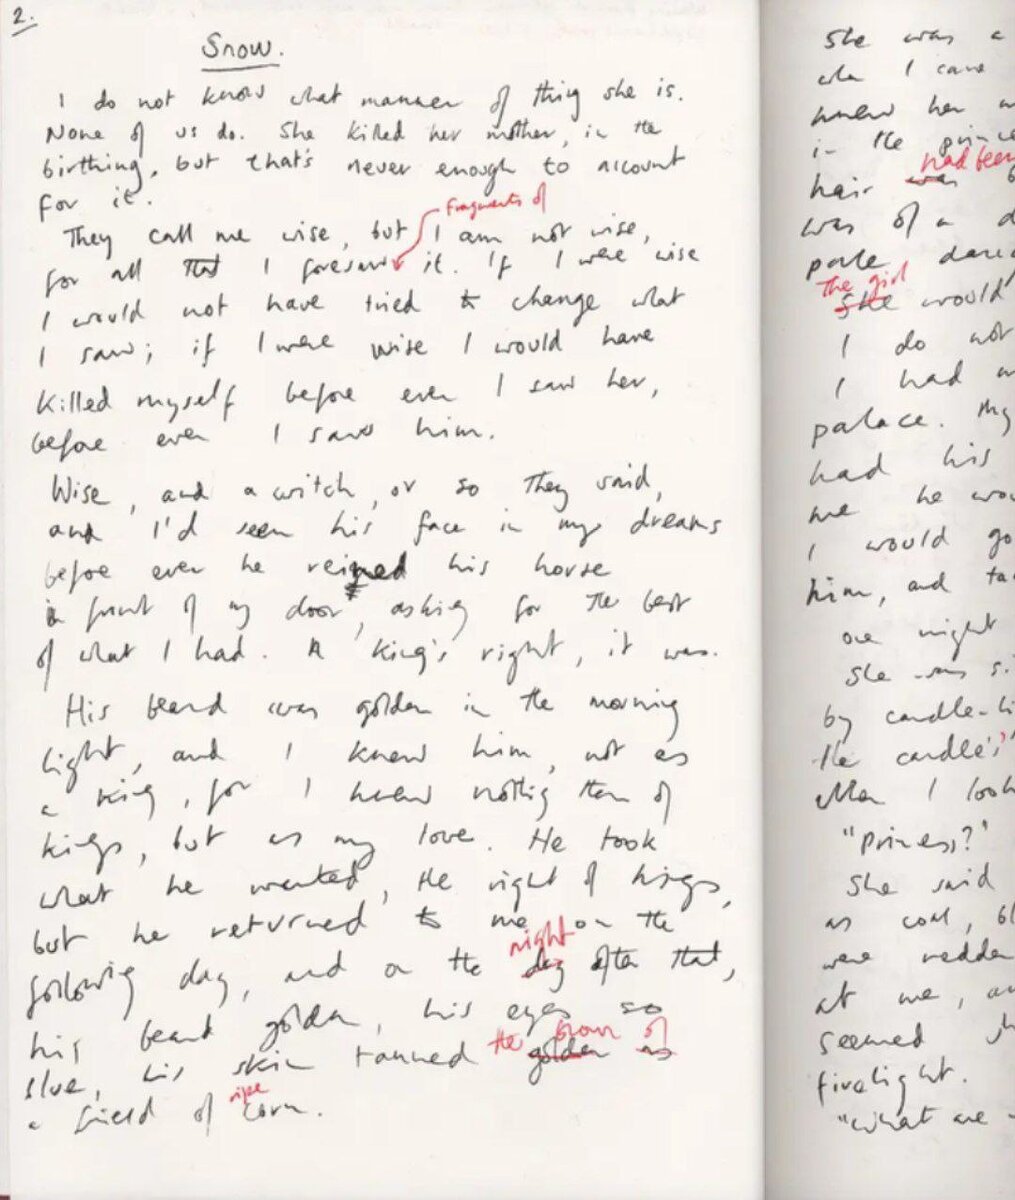 2.
Snow.
I do not know what manner of thing she is.
None of us do. She killed her mother, in the
birthing, but that's never enough to account
for it.
fragments of
They call me wise, but I am not wise,
for all that I foresaw it. If I were wise
I would not have tried to change what
I saw; if I were wise I would have
killed myself before ever I saw her,
before ever I saw him.
Wise, and a witch, or so they said,
and I'd seen his face in my dreams
before ever he reined his horse
in front of my door, asking for the best
of what I had. A king's right, it was.
His beard was golden in the morning
light, and I knew him, not as
a king, for I knew nothing then of
kings, but as my love. He took
what he wanted, the right of kings,
but he returned to me on the
night
following day, and on the day after that,
his beard golden, his eyes so
the brown of
blue, his skin tanned golden as
ripe
a field of corn.
She was a
when I came
knew her
in the
had been
hair was
was of a
pale
The girl
She would
I do not
I had
palace. My
had his
me he
I would go
him, and
one night
She was
by
the candle
When I
"Princess?"
She said
as coal,
were redder
at me,
seemed
firelight.
"What are